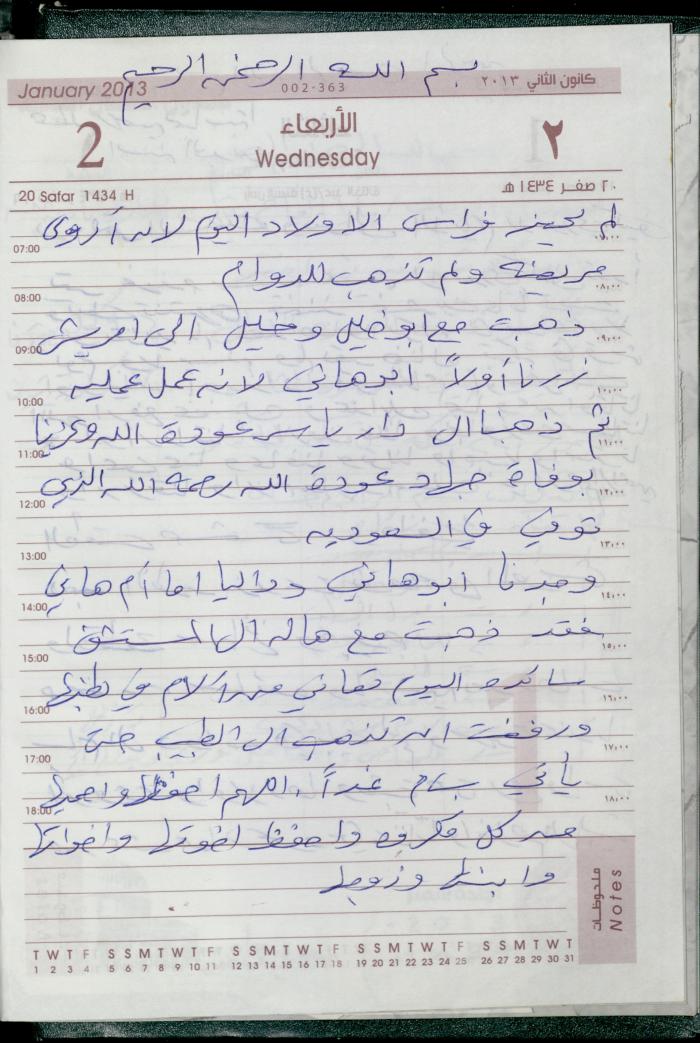 بسم الله الرحمن الرحيم
January 2013 002-363 كانون الثاني ٢٠١٣
2 الأربعاء ٢
Wednesday
20 Safar 1434 H ٢٠ صفر ١٤٣٤ هـ
لم يحضر فراس الاولاد اليوم لان أروى
07:00 ٠٧,٠٠
مريضه ولم تذهب للدوام
08:00 ٠٨,٠٠
ذهبت مع ابو خليل وخليل الى امريش
09:00 ٠٩,٠٠
زرنا أولاً ابوهاني لانه عمل عمليه
10:00 ١٠,٠٠
ثم ذهبنا ال دار ياسر عودة الله وعزينا
11:00 ١١,٠٠
بوفاة جهاد عودة الله رحمه الله الذي
12:00 ١٢,٠٠
توفي في السعوديه
13:00 ١٣,٠٠
وجدنا ابوهاني وداليا اما أم هاني
14:00 ١٤,٠٠
فقد ذهبت مع هاله ال المستشفى
15:00 ١٥,٠٠
سائده اليوم تعاني من آلام في بطنها
16:00 ١٦,٠٠
ورفضت ان تذهب ال الطبيب حتى
17:00 ١٧,٠٠
يأتي بسام غداً. اللهم احفظها واحميها
18:00 ١٨,٠٠
من كل مكروه واحفظ اخوتها واخواتها
وابنها وزوجها
ملحوظات
Notes
T W T F S S M T W T F S S M T W T F S S M T W T F S S M T W T
1 2 3 4 5 6 7 8 9 10 11 12 13 14 15 16 17 18 19 20 21 22 23 24 25 26 27 28 29 30 31